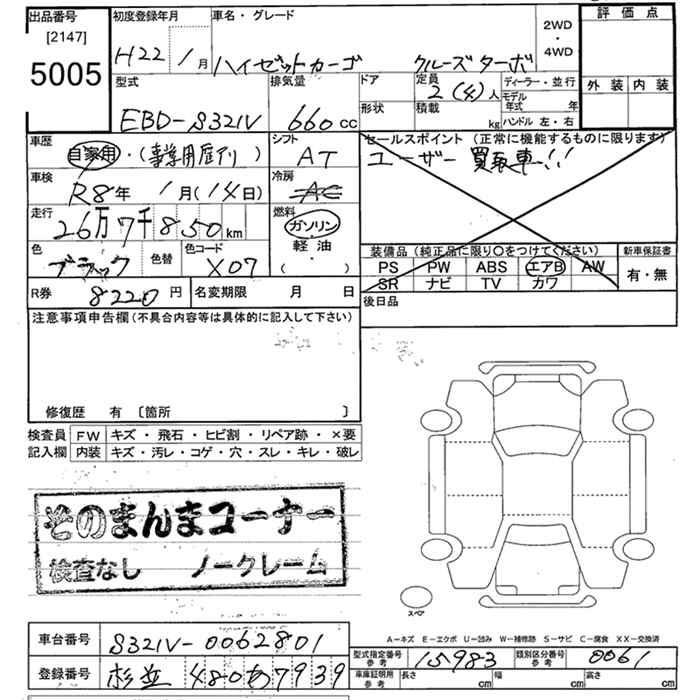 出品番号
[2147]
5005
初度登録年月
H22 1月
車名・グレード
ハイゼットカーゴ クルーズターボ
2WD
・
4WD
評価点
外装 内装
型式
EBD-S321V
排気量
660cc
ドア
形状
定員
2(4)人
積載
kg
ディーラー・並行
モデル年式 年
ハンドル 左・右
車歴
自家用・(事業用歴アリ)
車検
R8年 1月(14日)
走行
26万7千850km
色
ブラック
色替
色コード
X07
シフト
AT
冷房
AC
燃料
ガソリン
軽油
( ・ )
セールスポイント(正常に機能するものに限ります)
ユーザー買取車!!
装備品(純正品に限り○をつけてください)
PS PW ABS エアB AW
SR ナビ TV カワ
新車保証書
有・無
R券 8220円
名変期限 月 日
後日品
注意事項申告欄(不具合内容等は具体的に記入して下さい)
修復歴 有 〔箇所 〕
検査員記入欄
FW キズ・飛石・ヒビ割・リペア跡・×要
内装 キズ・汚レ・コゲ・穴・スレ・キレ・破レ
そのまんまコーナー
検査なし ノークレーム
スペア
A-キズ E-エクボ U-凹み W-補修跡 S-サビ C-腐食 XX-交換済
車台番号 S321V-0062801
登録番号 杉並 480あ7939
型式指定番号
参考
15983
類別区分番号
参考
0061
車庫証明用
参考
長さ cm 幅 cm 高さ cm